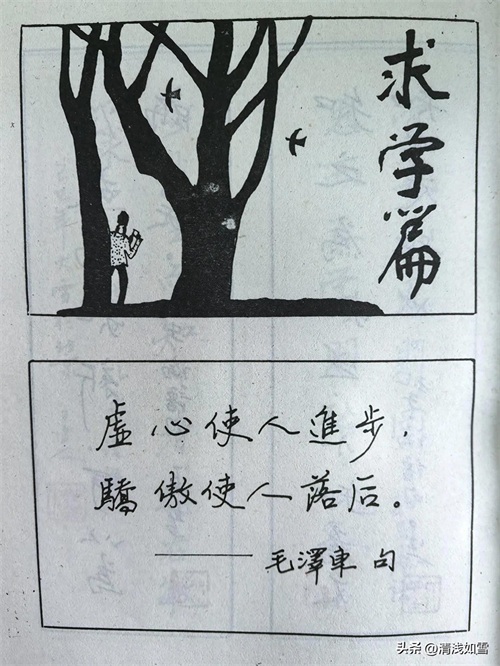 求学篇
虚心使人進步，
驕傲使人落后。
——毛澤東 句
头条 @清浅如雪